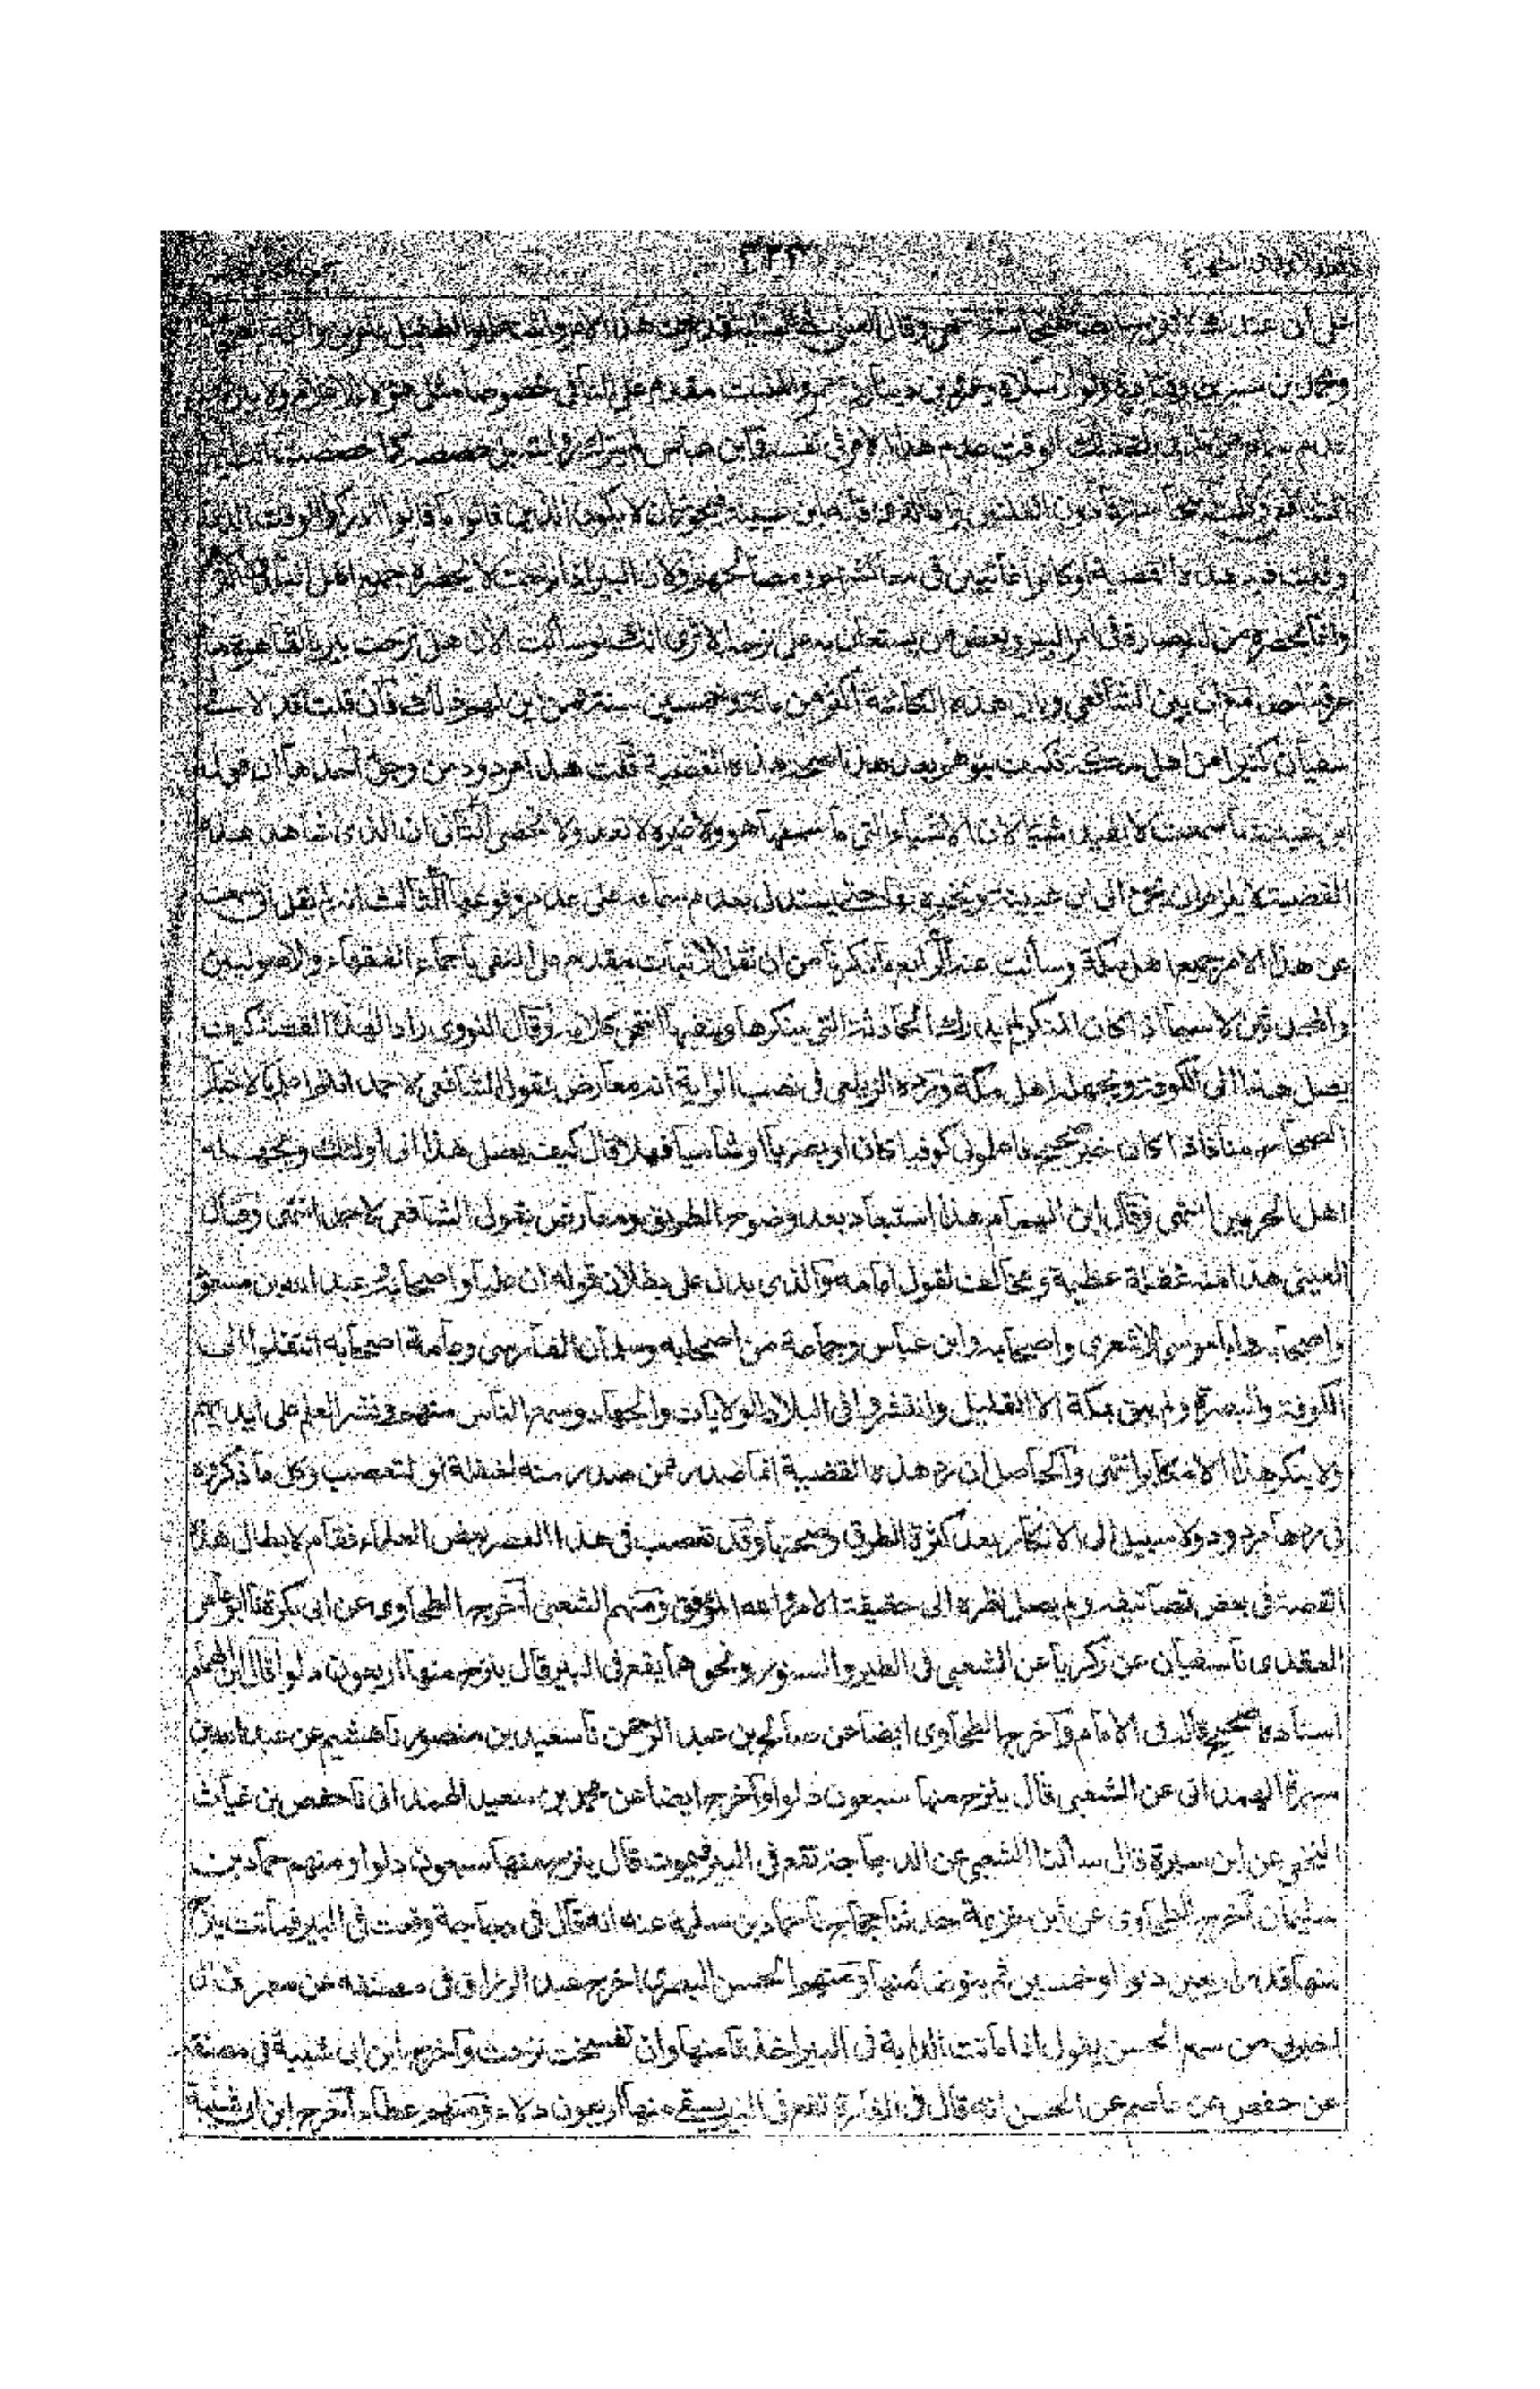 ٣٢٣
على ان عندك
ومحمد بن سيرين وقتادة وعمرو بن دينار والمثبت مقدم على النافي خصوصا مثل هؤلاء الاعلام ولا يلزم من
الوقت عدم هذا الامر في نفسه
دون القلتين لا يكون الذين قالوا ما قالوا ادركوا الوقت الذي
وقعت فيه هذه القضية او كانوا غائبين في معائشهم ومصالحهم ولان البير اذا نزحت لا يحضره جميع اهل البلد
وانما يحضره من له بصارة في امر البير وبعض من يستعان به على نزحها لا ترى انك لو سألت الآن هل نزحت بير بالقاهرة ما
عرف اصلا مع ان بين الشافعي وبين هذه الكائنة اكثر من مائة وخمسين سنة فمن اين لهم ذلك فان قلت قد لاقى
سفيان كثيرا من اهل مكة فكيف يتوهم بعد هذا صحة هذه القضية قلت هذا مردود من وجوه احدها ان قوله
ابن عيينة ما سمعت لا يفيد شيئا لان الاشياء التي ما سمعها هو ولا غيره لا تعد ولا تحصى الثاني ان الذي شاهد هذه
القضية لا يلزم ان يجئ الى ابن عيينة ويخبره بها حتى يستدل بعدم سماعه على عدم وقوعها الثالث انه لم يقل اني سألت
عن هذا الامر جميع اهل مكة وسألت عنه الرابع ما ذكرنا من ان نقل الاثبات مقدم على النفي باجماع الفقهاء والاصوليين
والمحدثين لاسيما اذا كان المنكر لم يدرك الحادثة التي ينكرها وينفيها انتهى كلامه وقال النووي رادا لهذه القصة كيف
يصل هذا الى الكوفة ويجهله اهل مكة ورده الزيلعي في نصب الراية انه معارض بقول الشافعي لاحمد انتم اعلم بالاخبار
الصحاح منا فاذا كان خبر صحيح فاعلموني كوفيا كان او بصريا او شاميا فهلا قال كيف يصل هذا الى اولئك ويجهله
اهل الحرمين انتهى وقال ابن الهمام هذا استبعاد بعد وضوح الطريق ومعارض بقول الشافعي لاحمد انتهى وقال
العيني هذا منه غفلة عظيمة ومخالف لقول امامه والذي يدل على بطلان قوله ان عليا واصحابه وعبد الله بن مسعود
واصحابه وابا موسى الاشعري واصحابه وابن عباس وجماعة من اصحابه وسلمان الفارسي وعامة اصحابه انتقلوا الى
الكوفة والبصرة ولم يبق بمكة الا القليل وانتشروا في البلاد للولايات والجهاد وسمع الناس منهم ونشر العلم على ايديهم
ولا ينكر هذا الا مكابر انتهى والحاصل ان رد هذه القضية انما صدر ممن صدر منه لغفلة او لتعصب وكل ما ذكروه
في ردها مردود ولا سبيل الى الانكار بعد كثرة الطرق وصحتها وقد تعصب في هذا العصر بعض العلماء فقام لابطال هذه
القصة في بعض تصانيفه ولم يصل نظره الى حقيقة الامر والله الموفق ومنهم الشعبي اخرجه الطحاوي عن ابي بكرة نا ابو عامر
العقدي نا سفيان عن زكريا عن الشعبي في الطير والسنور ونحوهما يقع في البير قال ينزح منها اربعون دلوا قال ابن الهمام
اسناده صحيح قاله في الامام واخرجه الطحاوي ايضا عن صالح بن عبد الرحمن نا سعيد بن منصور نا هشيم عن عبد الله بن
سبرة الهمداني عن الشعبي قال ينزح منها سبعون دلوا واخرج ايضا عن محمد بن سعيد الهمداني نا حفص بن غياث
النخعي عن ابن سبرة قال سألنا الشعبي عن الدجاجة تقع في البير فيموت قال ينزح منها سبعون دلوا ومنهم حماد بن
سليمان اخرجه الطحاوي عن ابن خزيمة حدثنا حجاج نا حماد بن سلمه عنه انه قال في دجاجة وقعت في البير فماتت ينزح
منها قدر اربعين دلوا او خمسين ثم يتوضأ منها ومنهم الحسن البصري اخرج عبد الرزاق في مصنفه عن معمر قال
اخبرني من سمع الحسن يقول اذا ماتت الدابة في البير اخذنا منها وان تفسخت نزحت واخرج ابن ابي شيبة في مصنفه
عن حفص عن عاصم عن الحسن انه قال في الفارة تقع في البير يستقى منها اربعون دلاء ومنهم عطاء اخرج ابن ابي شيبة